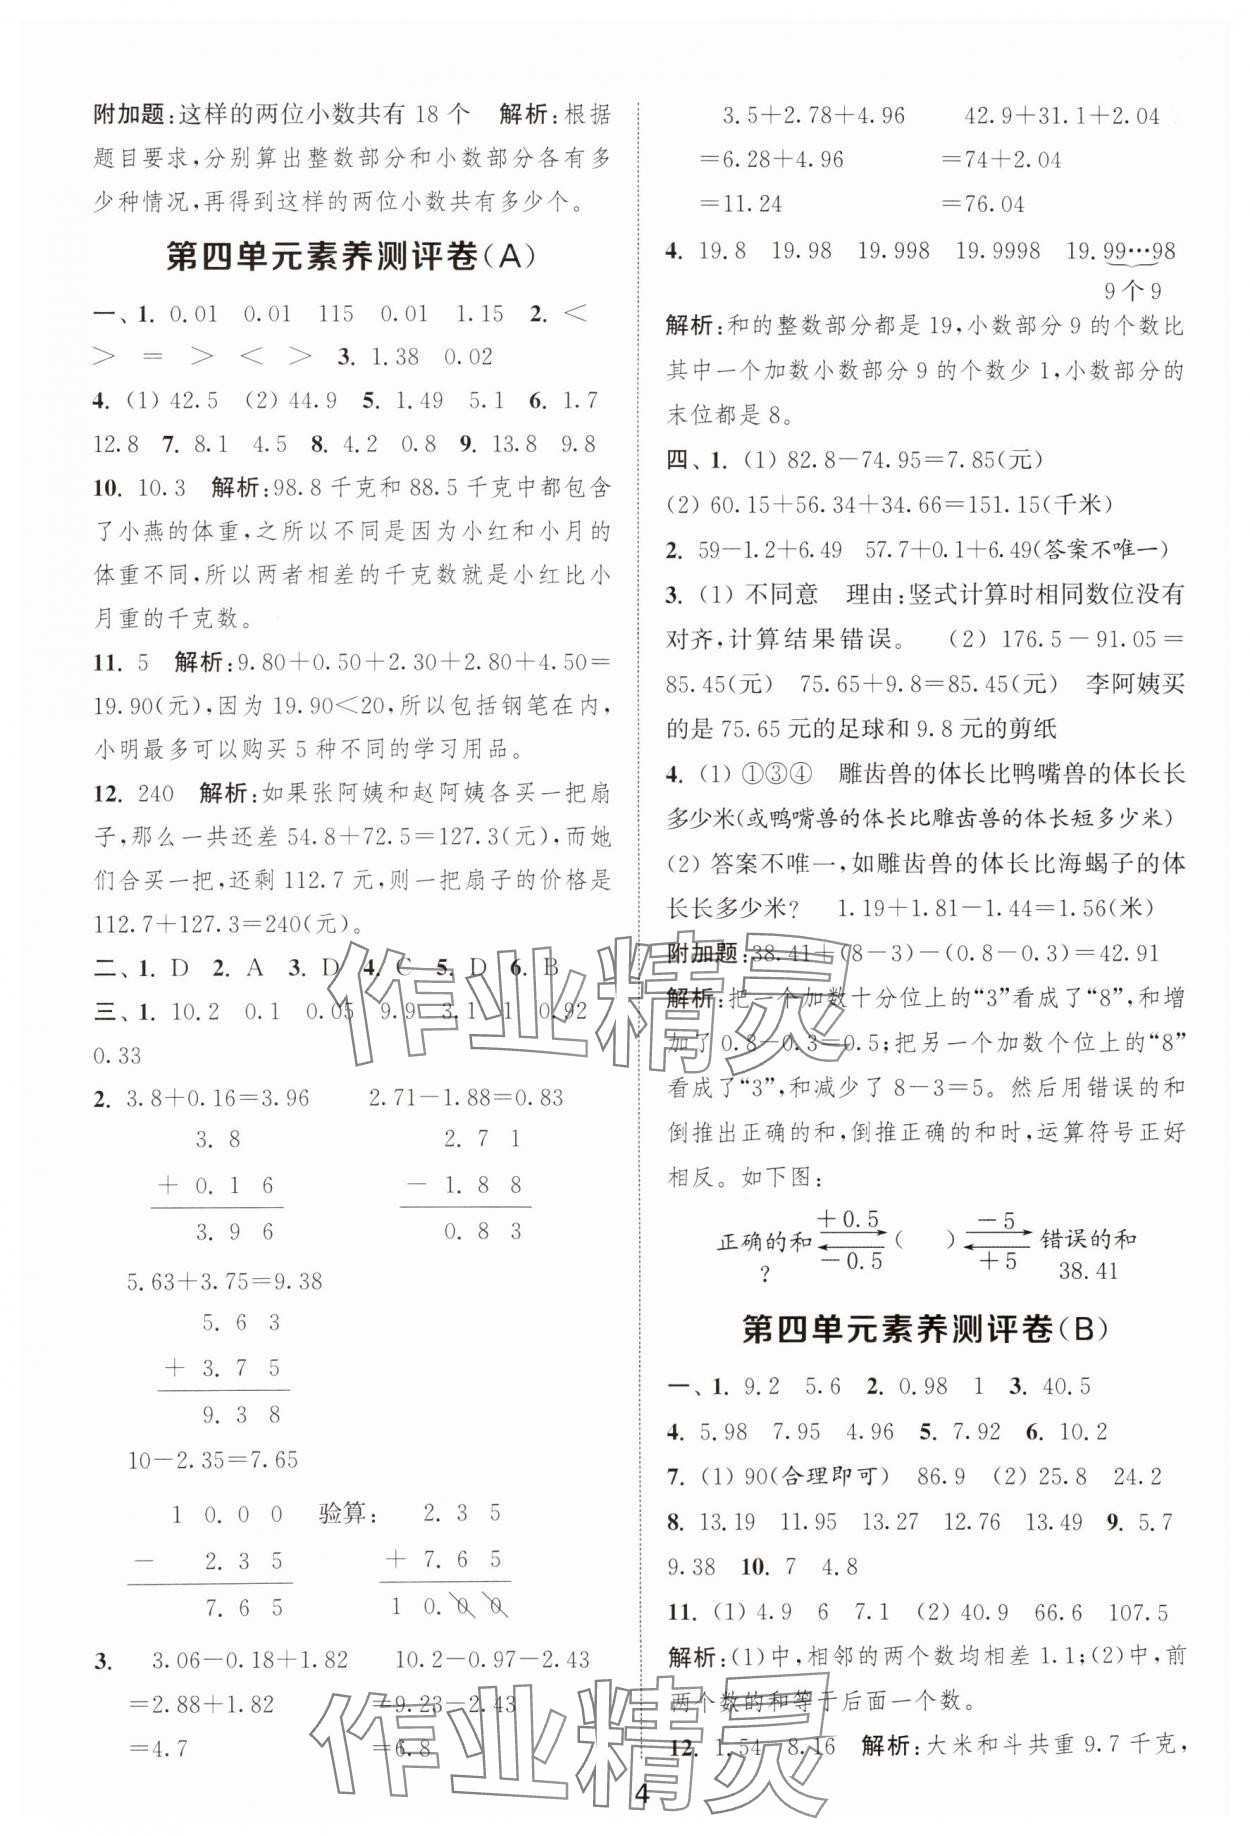 附加题:这样的两位小数共有 18 个　解析:根据
题目要求,分别算出整数部分和小数部分各有多
少种情况,再得到这样的两位小数共有多少个。
第四单元素养测评卷(A)
一、1. 0.01　0.01　115　0.01　1.15　2. <
>　=　>　<　>　3. 1.38　0.02
4. (1) 42.5　(2) 44.9　5. 1.49　5.1　6. 1.7
12.8　7. 8.1　4.5　8. 4.2　0.8　9. 13.8　9.8
10. 10.3　解析:98.8 千克和 88.5 千克中都包含
了小燕的体重,之所以不同是因为小红和小月的
体重不同,所以两者相差的千克数就是小红比小
月重的千克数。
11. 5　解析:9.80+0.50+2.30+2.80+4.50=
19.90(元),因为 19.90<20,所以包括钢笔在内,
小明最多可以购买 5 种不同的学习用品。
12. 240　解析:如果张阿姨和赵阿姨各买一把扇
子,那么一共还差 54.8+72.5=127.3(元),而她
们合买一把,还剩 112.7 元,则一把扇子的价格是
112.7+127.3=240(元)。
二、1. D　2. A　3. D　4. C　5. D　6. B
三、1. 10.2　0.1　0.05　9.9　3.1　1　0.92
0.33
2. 3.8+0.16=3.96　2.71-1.88=0.83
3. 8　2. 7 1
+ 0. 1 6　- 1. 8 8
3. 9 6　0. 8 3
5.63+3.75=9.38
5. 6 3
+ 3. 7 5
9. 3 8
10-2.35=7.65
1 0. 0 0　验算:　2. 3 5
- 2. 3 5　+ 7. 6 5
7. 6 5　1 0. 0 0
3. 3.06-0.18+1.82　10.2-0.97-2.43
=2.88+1.82　=9.23-2.43
=4.7　=6.8
3.5+2.78+4.96　42.9+31.1+2.04
=6.28+4.96　=74+2.04
=11.24　=76.04
4. 19.8　19.98　19.998　19.9998　19.99…98
9 个 9
解析:和的整数部分都是 19,小数部分 9 的个数比
其中一个加数小数部分 9 的个数少 1,小数部分的
末位都是 8。
四、1. (1) 82.8-74.95=7.85(元)
(2) 60.15+56.34+34.66=151.15(千米)
2. 59-1.2+6.49　57.7+0.1+6.49(答案不唯一)
3. (1) 不同意　理由:竖式计算时相同数位没有
对齐,计算结果错误。　(2) 176.5-91.05=
85.45(元)　75.65+9.8=85.45(元)　李阿姨买
的是 75.65 元的足球和 9.8 元的剪纸
4. (1) ①③④　雕齿兽的体长比鸭嘴兽的体长长
多少米(或鸭嘴兽的体长比雕齿兽的体长短多少米)
(2) 答案不唯一,如雕齿兽的体长比海蝎子的体
长长多少米?　1.19+1.81-1.44=1.56(米)
附加题:38.41+(8-3)-(0.8-0.3)=42.91
解析:把一个加数十分位上的“3”看成了“8”,和增
加了 0.8-0.3=0.5;把另一个加数个位上的“8”
看成了“3”,和减少了 8-3=5。然后用错误的和
倒推出正确的和,倒推正确的和时,运算符号正好
相反。如下图:
+0.5　-5
正确的和　(　　)　错误的和
-0.5　+5
?　38.41
第四单元素养测评卷(B)
一、1. 9.2　5.6　2. 0.98　1　3. 40.5
4. 5.98　7.95　4.96　5. 7.92　6. 10.2
7. (1) 90(合理即可)　86.9　(2) 25.8　24.2
8. 13.19　11.95　13.27　12.76　13.49　9. 5.7
9.38　10. 7　4.8
11. (1) 4.9　6　7.1　(2) 40.9　66.6　107.5
解析:(1)中,相邻的两个数均相差 1.1;(2)中,前
两个数的和等于后面一个数。
12. 1.54　8.16　解析:大米和斗共重 9.7 千克,
4
作业精灵
作业精灵